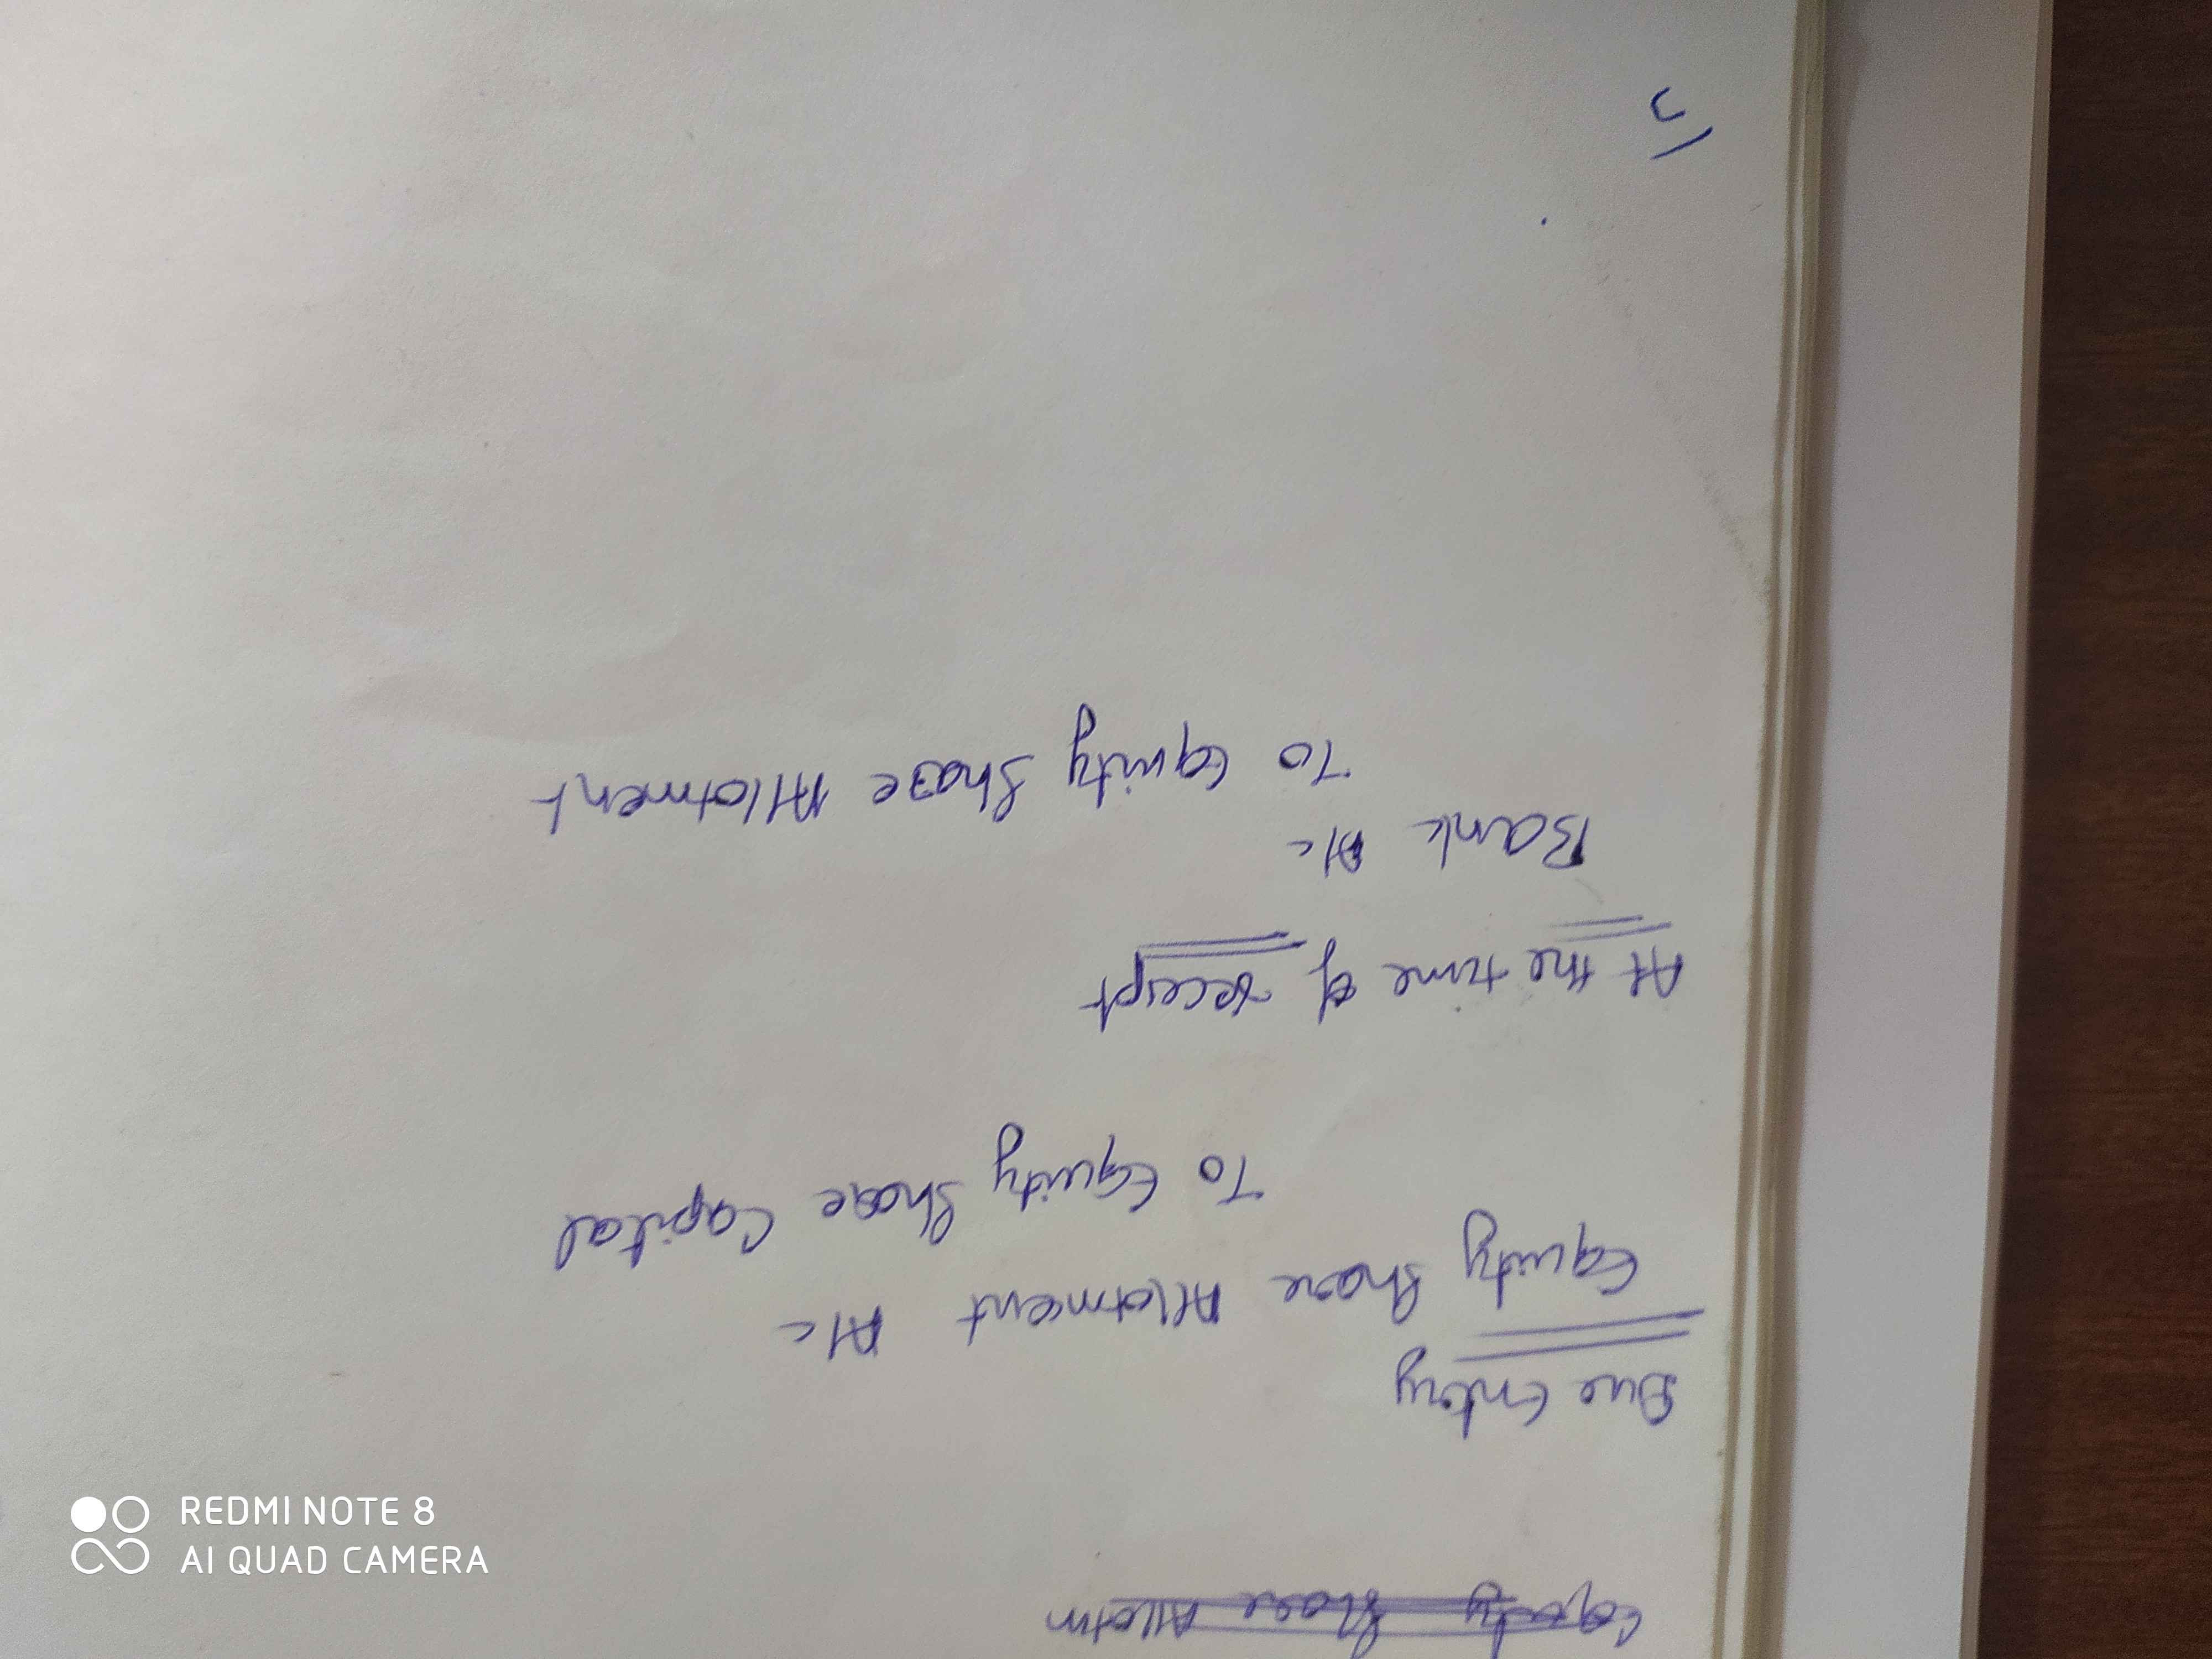 Due Entry
Equity Share Allotment A/c
To Equity Share Capital
At the time of receipt
Bank A/c
To Equity Share Allotment
REDMI NOTE 8
AI QUAD CAMERA